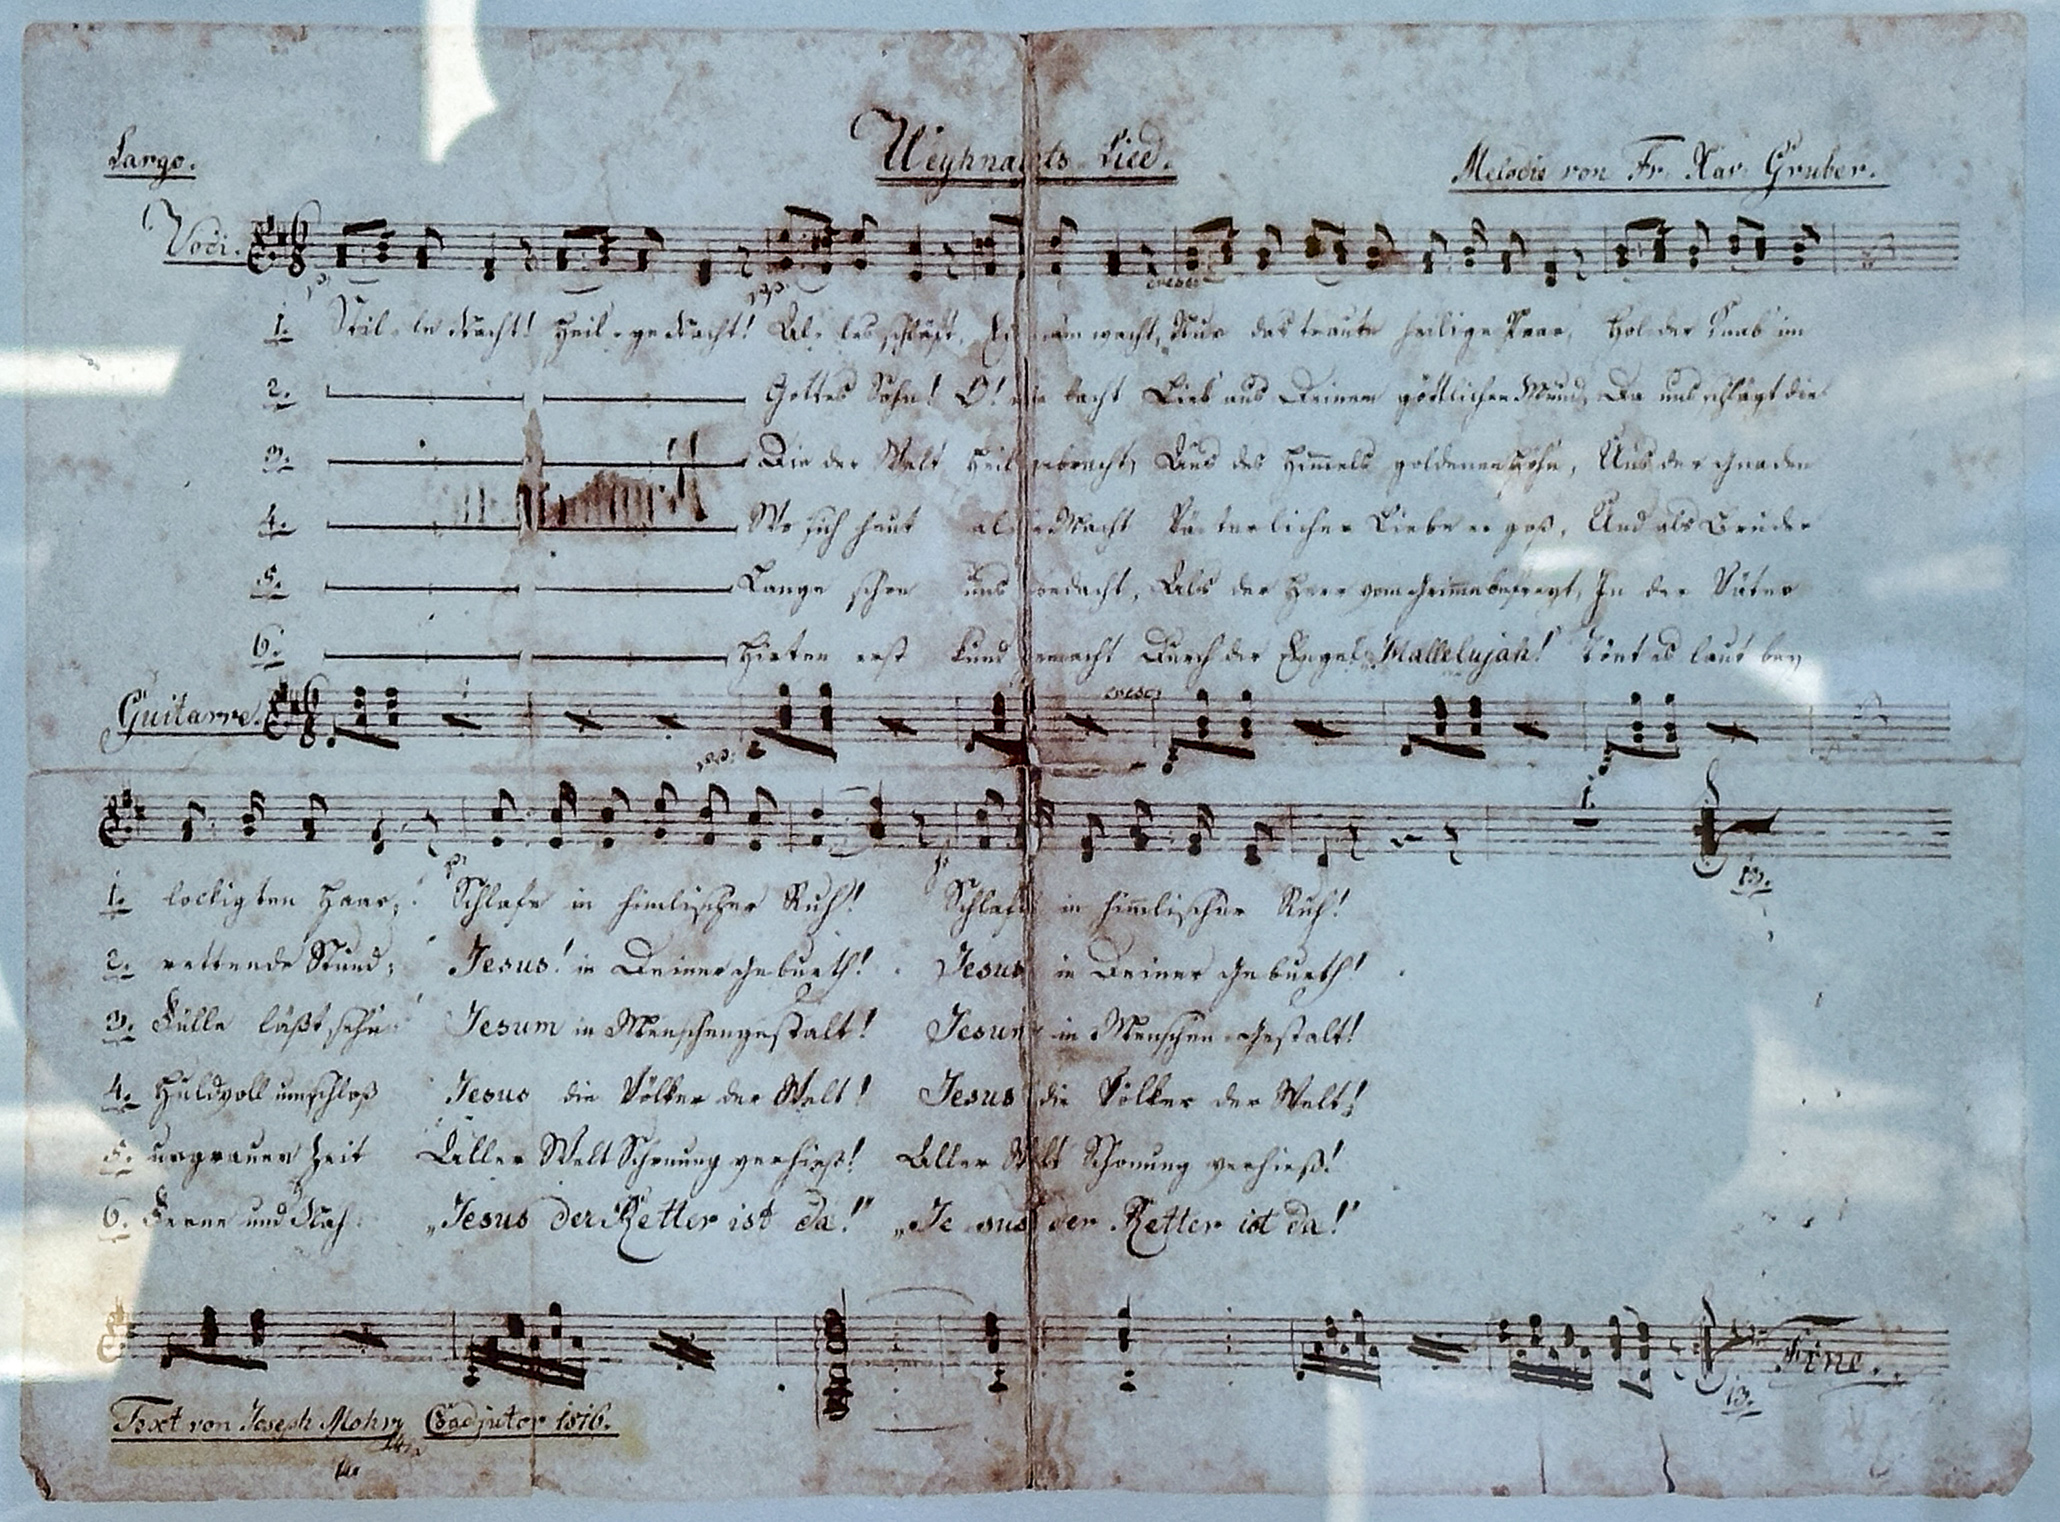 Largo.
Weyhnachts-Lied.
Melodie von Fr. Xav. Gruber.
Voci.
pp.
cresc.
1. Stil-le Nacht! Heil-ge Nacht! Al-les schläft. Einsam wacht, Nur das traute heilige Paar, Holder Knab' im
2. Gottes Sohn! O! wie lacht Lieb' aus Deinem göttlichen Mund, Da uns schlägt die
3. Die der Welt Heil gebracht, Aus des Himmels goldenen Höhn, Aus der Gnaden
4. Wo sich heut alle Macht Väterlicher Liebe ergoß, Und als Bruder
5. Lange schon uns bedacht, Als der Herr vom Grimme befreyt, In der Väter
6. Hirten erst kund gemacht Durch der Engel Hallelujah! Tönt es laut bey
cresc.
Guitarre.
pp.
p.
1. lockigten Haar; Schlafe in himlischer Ruh! Schlafe in himmlischer Ruh!
2. rettende Stund; Jesus! in Deiner Geburth! Jesus in Deiner Geburth!
3. Fülle läßt sehn Jesum in Menschengestalt! Jesum in Menschen-Gestalt!
4. Huldvoll umschloß Jesus die Völker der Welt! Jesus die Völker der Welt!
5. urgrauer Zeit Aller Welt Schonung verhieß! Aller Welt Schonung verhieß!
6. Ferne und Nah "Jesus der Retter ist da!" "Jesus der Retter ist da!"
Fine.
Text von Joseph Mohr Coadjutor 1816.